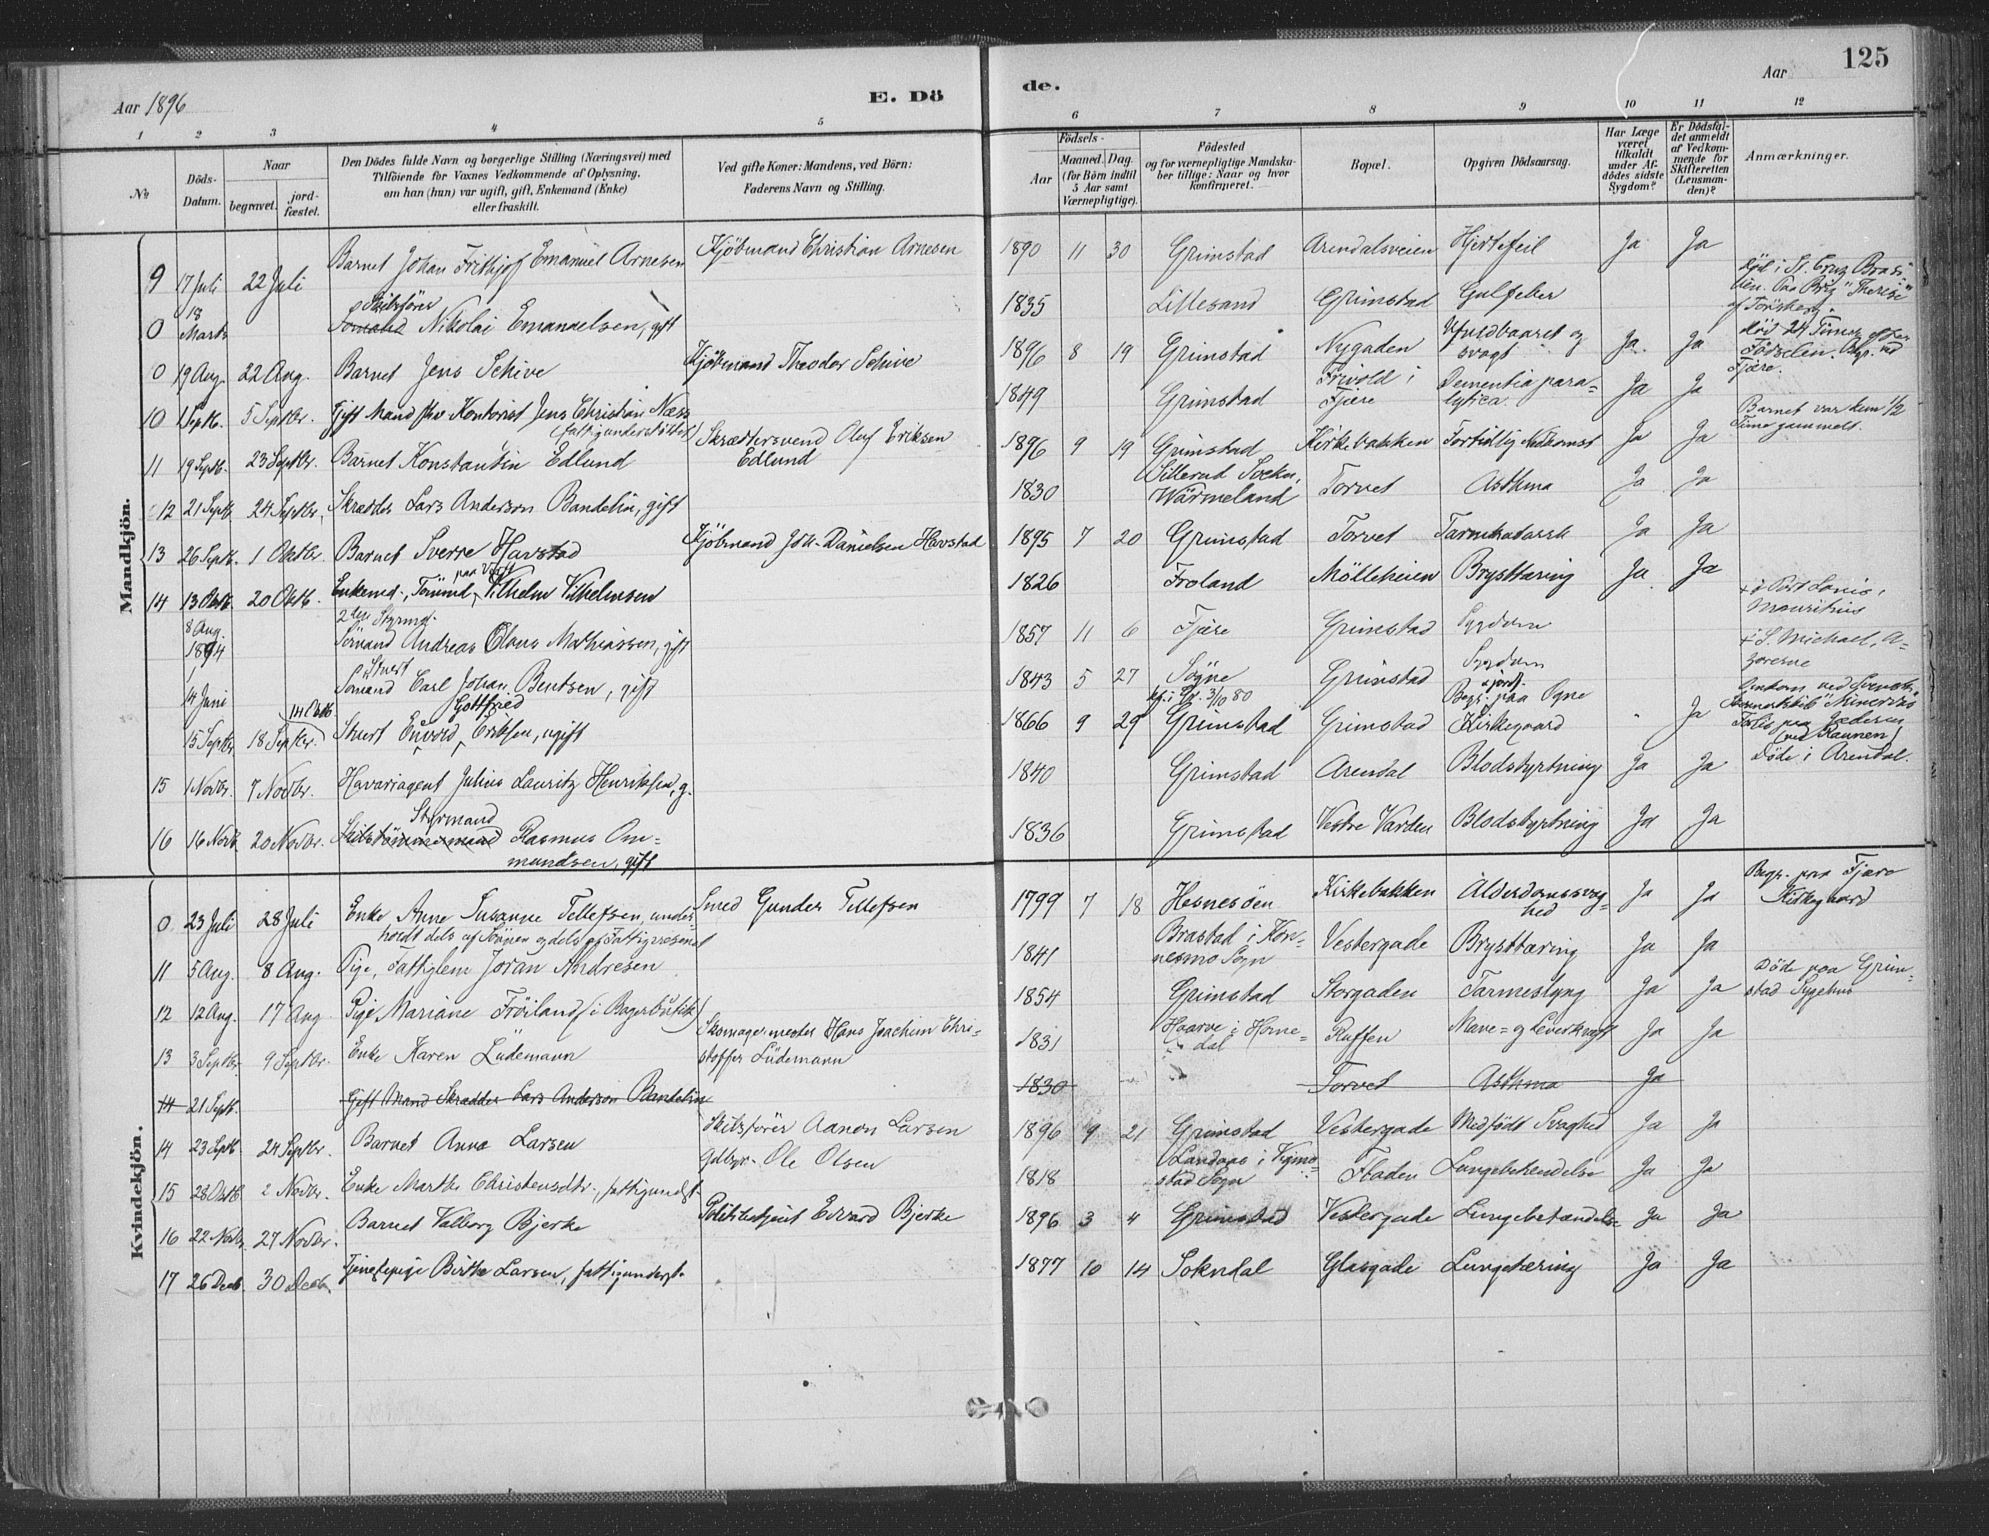 Aar 1896 E. Dö
de. Aar 125
1 2 3 4 5 6 7 8 9 10 11 12
№
Döds-Datum.
Naar
begravet.
jord-fæstet.
Den Dödes fulde Navn og borgerlige Stilling (Næringsvei) med
Tilföiende for Voxnes Vedkommende af Oplysning.
om han (hun) var ugift, gift, Enkemand (Enke)
eller fraskilt.
Ved gifte Koner: Mandens, ved Börn:
Faderens Navn og Stilling.
Födsels-
Aar
Maaned. Dag.
(for Börn indtil
5 Aar samt
Værnepligtige).
Födested
og for værnepligtige Mandska-
ber tillige: Naar og hvor
konfirmeret.
Bopæl.
Opgiven Dödsaarsag.
Har Læge
været
tilkaldt
under Af-
dödes sidste
Sygdom?
Er Dödsfal-
det anmeldt
af Vedkom-
mende for
Skifteretten
(Lensman-
den)?
Anmærkninger.
Mandkjön.
9 17 Juli 22 Juli Barnet Johan Frithjof Emanuel Arnesen Kjöbmand Christian Arnesen 1890 11 30 Grimstad Arendalsveien Hjertefeil Ja Ja
0 18 Marts Skibsförer Sömand Nikolai Emanuelsen, gift 1835 Lillesand Grimstad Gulfeber Död i St. Cruz Brasi-
lien. Paa Brig "Therese"
af Tönsberg.
0 19 Aug. 22 Aug. Barnet Jens Schive Kjöbmand Theodor Schive 1896 8 19 Grimstad Nygaden Ufuldbaaret og
svagt Ja Ja Död 24 Timer efter
Födselen. Begr. ved
Fjære.
10 1 Septb. 5 Septbr. Gift Mand fhv. Kontorist Jens Christian Næss
(fattigunderstöttet) 1849 Grimstad Frivold i
Fjære Dementia para-
lytica. Ja Ja
11 19 Septb. 23 Septbr. Barnet Konstantin Edlund Skrædersvend Oluf Eriksen
Edlund 1896 9 19 Grimstad Kirkebakken Fortidlig Nedkomst Ja Ja Barnet var kun 1/2
Time gammelt.
12 21 Septb. 24 Septbr. Skrædder Lars Anderson Bandelin, gift 1830 Sillerud Socken,
Wärmeland Torvet Asthma Ja Ja
13 26 Septb. 1 Oktbr. Barnet Sverre Havstad Kjöbmand Joh. Danielsen Havstad 1895 7 20 Grimstad Torvet Tarmkatarrh Ja Ja
14 13 Oktb. 20 Oktb. Enkemd., Tömmd. paa Værft Vilhelm Vilhelmsen 1826 Froland Mölleheien Brysttæring Ja Ja
8 Aug.
1894 2den Styrmd.
Sömand Andreas Olaus Mathiassen, gift 1857 11 6 Fjære Grimstad Sygdom + i Port Louis,
Mauritius
14 Juni Stuert
Sömand Carl Johan Bentsen, gift 1843 5 27 Søgne Grimstad Sygdom + S. Michael, A-
zorerne
15 Septbr. 18 Septbr. 14 Oktb. Stuert Envold Gottfried Eriksen, ugift 1866 9 29 3/10 80
Grimstad Grimstad Begr. & jordf. paa Ogne
Kirkegaard " Ja Omkom ved Svensk
"Minervas"
Forlis paa Jæderen
(ved Raunen)
15 1 Novbr. 7 Novbr. Havariagent Julius Lauritz Henriksen, g. 1840 Grimstad Arendal Blodstyrtning Ja Ja Döde i Arendal.
16 16 Novb. 20 Novbr. Styrmand
Skibstömmermand Rasmus Om-
mundsen, gift 1836 Grimstad Vestre Varden Blodstyrtning Ja Ja
Kvindekjön.
0 23 Juli 28 Juli Enke Anne Susanne Tellefsen, under-
holdt dels af Sönnen og dels af Fattigvæsenet Smed Gunder Tellefsen 1799 7 18 Hesnesöen Kirkebakken Alderdomssvag-
hed Ja Ja Begr. paa Fjære
Kirkegaard
11 5 Aug. 8 Aug. Pige, Fattiglem Joran Andresen 1841 Brastad i Kon-
nesmo Sogn Vestergade Brysttæring Ja Ja
12 12 Aug. 17 Aug Pige Mariane Fröiland (i Bagerbutik) 1854 Grimstad Storgaden Tarmeslyng Ja Ja Döde paa Grim-
stad Sygehus
13 3 Septbr. 9 Septbr. Enke Karen Lüdemann Skomagermester Hans Joachim Chri-
stoffer Lüdemann 1831 Haarve i Horne-
dal Ruffen Mave- og Leverkræft Ja Ja
14 21 Septb. Gift Mand Skrædder Lars Anderson Bandelin 1830 Torvet Asthma Ja
14 23 Septb 24 Septbr. Barnet Anna Larsen Skibsförer Aanon Larsen 1896 9 21 Grimstad Vestergade Medfödt Svaghed Ja Ja
15 28 Oktb. 2 Novbr. Enke Marthe Christensdtr., fattigundst. Gdbgr. Ole Olsen 1818 Landaas i Vigmo-
stad Sogn Fladen Lungebetendelse Ja Ja
16 22 Novbr. 27 Novbr. Barnet Valborg Bjerke Politibetjent Edvard Bjerke 1896 3 4 Grimstad Vestergade Lungebetændelse Ja Ja
17 26 Decb. 30 Decb. Tjenestepige Birthe Larsen, fattigunderst. 1877 10 14 Sokndal Glasgade Lungetæring Ja Ja